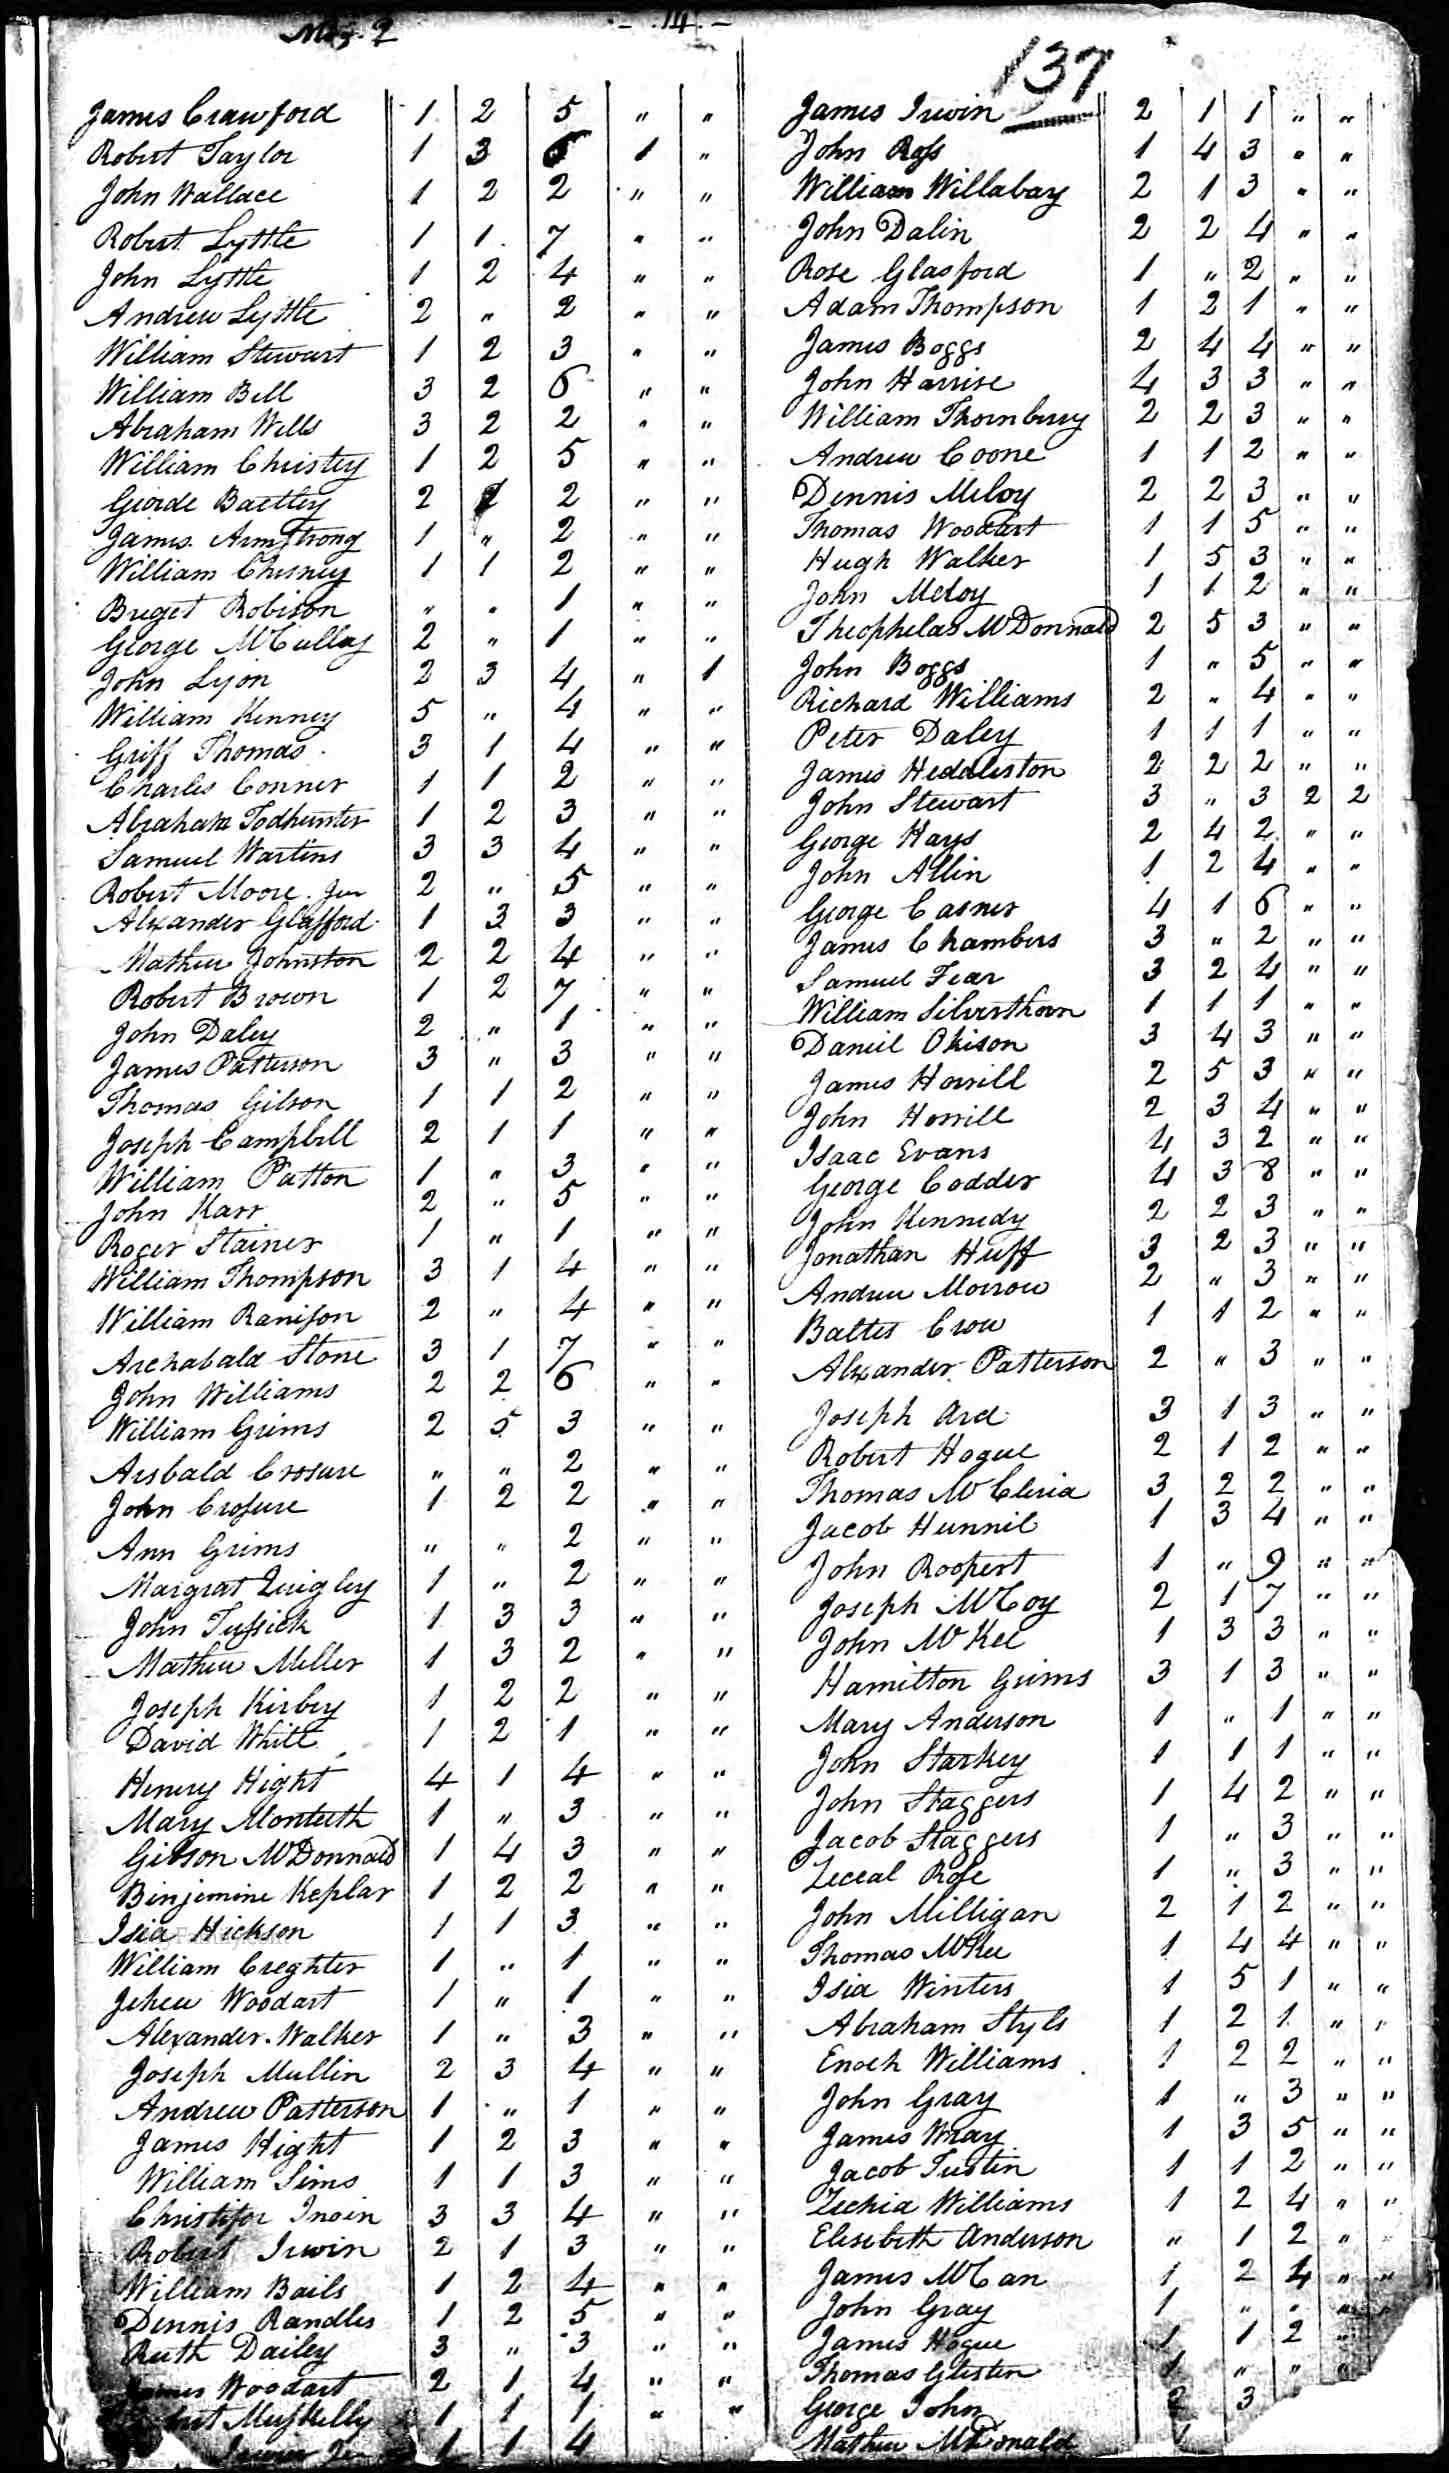 No. 2
- 14 -
137
James Crawford 1 2 5 " "
Robert Taylor 1 3 6 1 "
John Wallace 1 2 2 " "
Robert Lyttle 1 1 7 " "
John Lyttle 1 2 4 " "
Andrew Lyttle 2 " 2 " "
William Stewart 1 2 3 " "
William Bell 3 2 6 " "
Abraham Wells 3 2 2 " "
William Christey 1 2 5 " "
Giorde Bartley 2 2 " "
James Armstrong 1 " 2 " "
William Chesney 1 1 2 " "
Buget Robison " " 1 " "
George McCullay 2 " 1 " "
John Lyon 2 3 4 " 1
William Kenney 5 " 4 " "
Griff Thomas 3 1 4 " "
Charles Conner 1 1 2 " "
Abraham Todhunter 1 2 3 " "
Samuel Martins 3 3 4 " "
Robert Moore Jun 2 " 5 " "
Alexander Glassford 1 3 3 " "
Mathew Johnston 2 2 4 " "
Robert Brown 1 2 7 " "
John Daley 2 " 1 " "
James Patterson 3 " 3 " "
Thomas Gilson 1 1 2 " "
Joseph Campbell 2 1 1 " "
William Patton 1 " 3 " "
John Karr 2 " 5 " "
Roger Stainer 1 " 1 " "
William Thompson 3 1 4 " "
William Ranison 2 " 4 " "
Archabald Stone 3 1 7 " "
John Williams 2 2 6 " "
William Grims 2 5 3 " "
Arsbald Crosure " " 2 " "
John Crosure 1 2 2 " "
Ann Grims " " 2 " "
Margrat Quigley 1 " 2 " "
John Tussick 1 3 3 " "
Mathew Meller 1 3 2 " "
Joseph Kirbey 1 2 2 " "
David White 1 2 1 " "
Henery Hight 4 1 4 " "
Mary Monteeth 1 " 3 " "
Gibson McDonnald 1 4 3 " "
Binjemine Keplar 1 2 2 " "
Isia Hickson 1 1 3 " "
William Creghter 1 " 1 " "
Jeheu Woodart 1 " 1 " "
Alexander Walker 1 " 3 " "
Joseph Mullin 2 3 4 " "
Andrew Patterson 1 " 1 " "
James Hight 1 2 3 " "
William Sims 1 1 3 " "
Christifor Irwin 3 3 4 " "
Robert Irwin 2 1 3 " "
William Bails 1 2 4 " "
Dennis Randles 1 2 5 " "
Ruth Dailey 3 " 3 " "
Woodart 2 1 4 " "
Muskelly 1 1 1 " "
1 1 4
James Irwin 2 1 1 " "
John Ross 1 4 3 " "
William Willabay 2 1 3 " "
John Dalin 2 2 4 " "
Rose Glasford 1 " 2 " "
Adam Thompson 1 2 1 " "
James Boggs 2 4 4 " "
John Harrise 4 3 3 " "
William Thornberry 2 2 3 " "
Andrew Coone 1 1 2 " "
Dennis Meloy 2 2 3 " "
Thomas Woodart 1 1 5 " "
Hugh Walker 1 5 3 " "
John Meloy 1 1 2 " "
Theophelas McDonnald 2 5 3 " "
John Boggs 1 " 5 " "
Richard Williams 2 " 4 " "
Peter Daley 1 1 1 " "
James Heddleston 2 2 2 " "
John Stewart 3 " 3 2 2
George Hays 2 4 2 " "
John Allin 1 2 4 " "
George Casner 4 1 6 " "
James Chambers 3 " 2 " "
Samuel Fear 3 2 4 " "
William Silverthorn 1 1 1 " "
Daniel Okison 3 4 3 " "
James Horrill 2 5 3 " "
John Horrill 2 3 4 " "
Isaac Evans 4 3 2 " "
George Codder 4 3 8 " "
John Kennedy 2 2 3 " "
Jonathan Huff 3 2 3 " "
Andrew Morrow 2 " 3 " "
Baltes Crow 1 1 2 " "
Alexander Patterson 2 " 3 " "
Joseph Ard 3 1 3 " "
Robert Hogue 2 1 2 " "
Thomas McCleria 3 2 2 " "
Jacob Hunnil 1 3 4 " "
John Roopert 1 " 9 " "
Joseph McCoy 2 1 7 " "
John McKee 1 3 3 " "
Hamilton Grims 3 1 3 " "
Mary Anderson 1 " 1 " "
John Starkey 1 1 1 " "
John Staggers 1 4 2 " "
Jacob Staggers 1 " 3 " "
Zeceal Rose 1 " 3 " "
John Milligan 2 1 2 " "
Thomas McKee 1 4 4 " "
Isia Winters 1 5 1 " "
Abraham Styls 1 2 1 " "
Enoch Williams 1 2 2 " "
John Gray 1 " 3 " "
James Wray 1 3 5 " "
Jacob Tustin 1 1 2 " "
Zechia Williams 1 2 4 " "
Elesebeth Anderson " 1 2 "
James McCan 1 2 4 " "
John Gray 1 " " " "
James Hogue 1 1 2 "
Thomas Glisten 1 " "
George John 2 3
Mathew McDonald 1